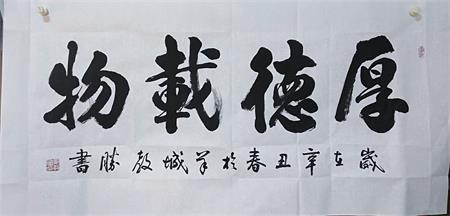 厚德載物
歲在辛丑春於羊城勝書